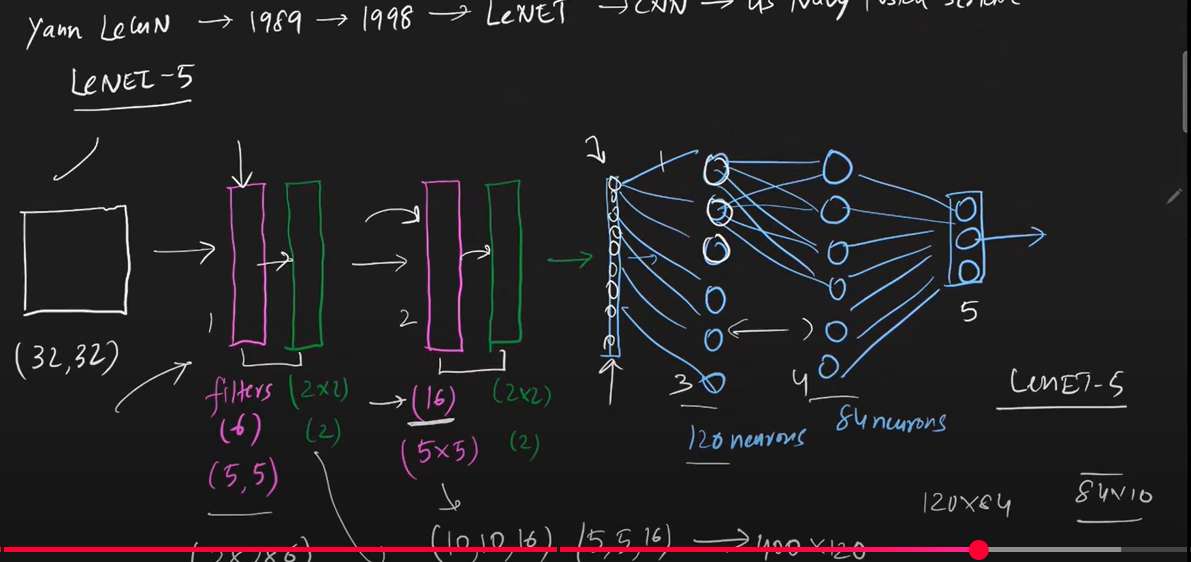 Yann LeCUN → 1989 → 1998 → LeNET → CNN → US Navy
LeNET-5
(32,32)
1
filters
(6)
(5,5)
(2×2)
(2)
2
→(16)
(5×5)
(2×2)
(2)
3
120 neurons
4
84 neurons
5
LeNET-5
120×84
84×10
(10,10,16) (5,5,16) → 400×120